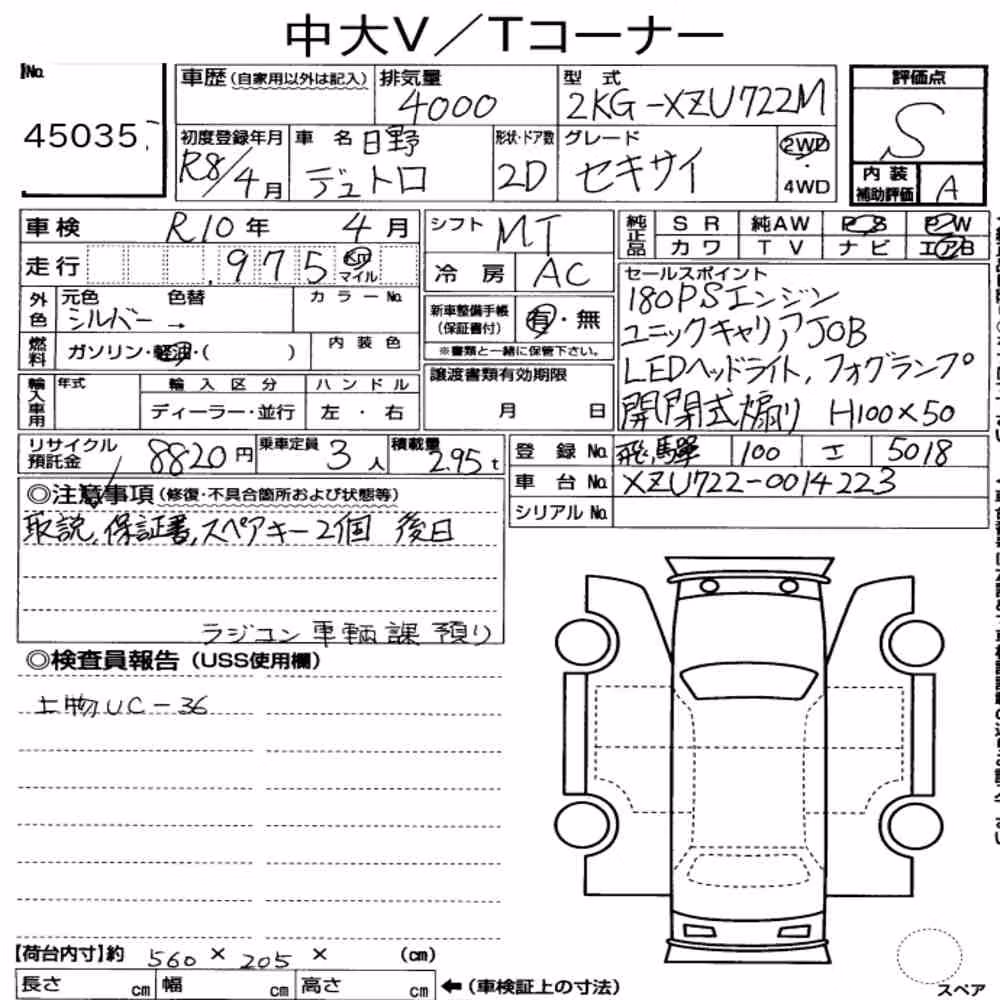 中大V／Tコーナー
No.
45035
車歴（自家用以外は記入）
排気量
4000
型式
2KG-XZU722M
評価点
S
初度登録年月
R8/4月
車名 日野
デュトロ
形状・ドア数
2D
グレード
セキサイ
2WD
・
4WD
内装
補助評価
A
車検 R10年 4月
走行 975 km マイル
シフト MT
冷房 AC
純正品
SR 純AW PS PW
カワ TV ナビ エアB
外色
元色 色替
シルバー →
カラーNo.
新車整備手帳
（保証書付）
有・無
※書類と一緒に保管下さい。
燃料
ガソリン・軽油・（ ）
内装色
セールスポイント
180PSエンジン
ユニックキャリアJOB
LEDヘッドライト, フォグランプ
開閉式煽り H100×50
輸入車用
年式
輸入区分
ディーラー・並行
ハンドル
左・右
譲渡書類有効期限
月 日
リサイクル
預託金
8820円
乗車定員 3人
積載量 2.95t
登録No. 飛驒 100 エ 5018
車台No. XZU722-0014223
シリアルNo.
◎注意事項（修復・不具合箇所および状態等）
取説, 保証書, スペアキー2個 後日
ラジコン 車輌課 預り
◎検査員報告（USS使用欄）
上物UC-36
【荷台内寸】約 560 × 205 × （cm）
長さ cm 幅 cm 高さ cm ←（車検証上の寸法）
スペア